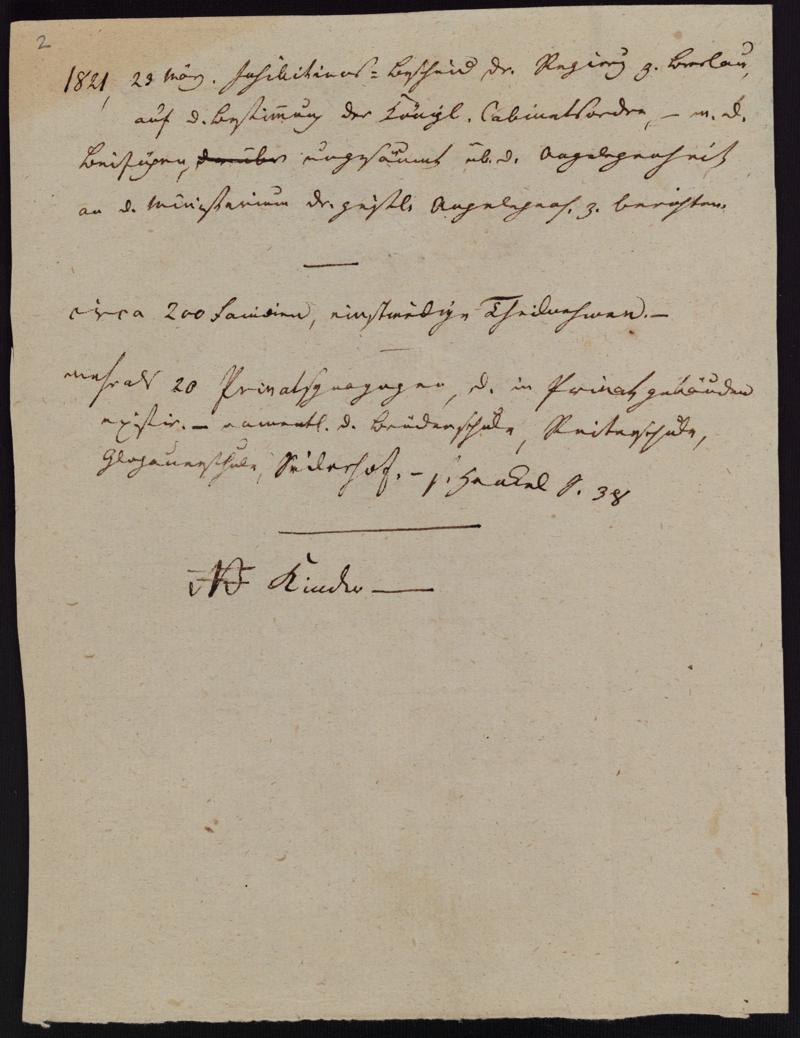 2
1821, 23 März. Inhibitions-Bescheid dr. Regierg z. Breslau,
auf d. Bestimmung der Königl. Cabinetsordre, – m. d.
Beifügen, darüber ungesäumt üb. d. Angelegenheit
an d. Ministerium dr. geistl. Angelegenh. z. berichten.
circa 200 Familien, einstweilige Theilnehmer. –
mehr als 20 Privatsynagogen, d. in Privatgebäuden
existir. – namentl. d. Brüderschule, Reiterschule,
Glogauerschule, – s. Henckel S. 38
Kinder —